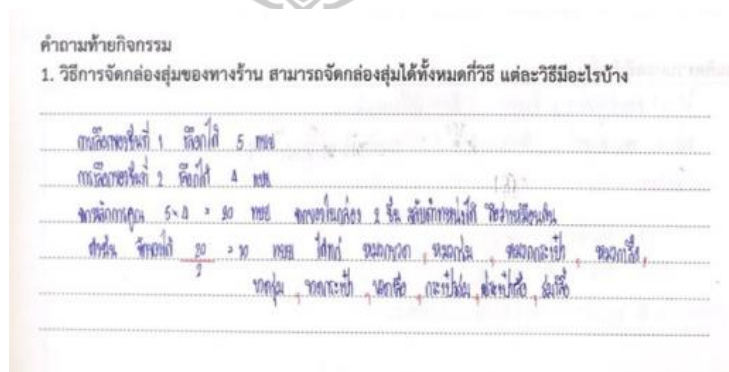 คำถามท้ายกิจกรรม
1. วิธีการจัดกล่องสุ่มของทางร้าน สามารถจัดกล่องสุ่มได้ทั้งหมดกี่วิธี แต่ละวิธีมีอะไรบ้าง
การเลือกของชิ้นที่ 1 เลือกได้ 5 แบบ
การเลือกของชิ้นที่ 2 เลือกได้ 4 แบบ
จากหลักการคูณ 5×4 = 20 แบบ ของในกล่อง 2 ชิ้น สลับตำแหน่งได้ ถือว่าเหมือนกัน
ดังนั้น จัดของได้ 20/2 = 10 แบบ ได้แก่ หมวกขวด , หมวกร่ม , หมวกกระเป๋า , หมวกเสื้อ ,
ขวดร่ม , ขวดกระเป๋า , ขวดเสื้อ , กระเป๋าร่ม , กระเป๋าเสื้อ , ร่มเสื้อ